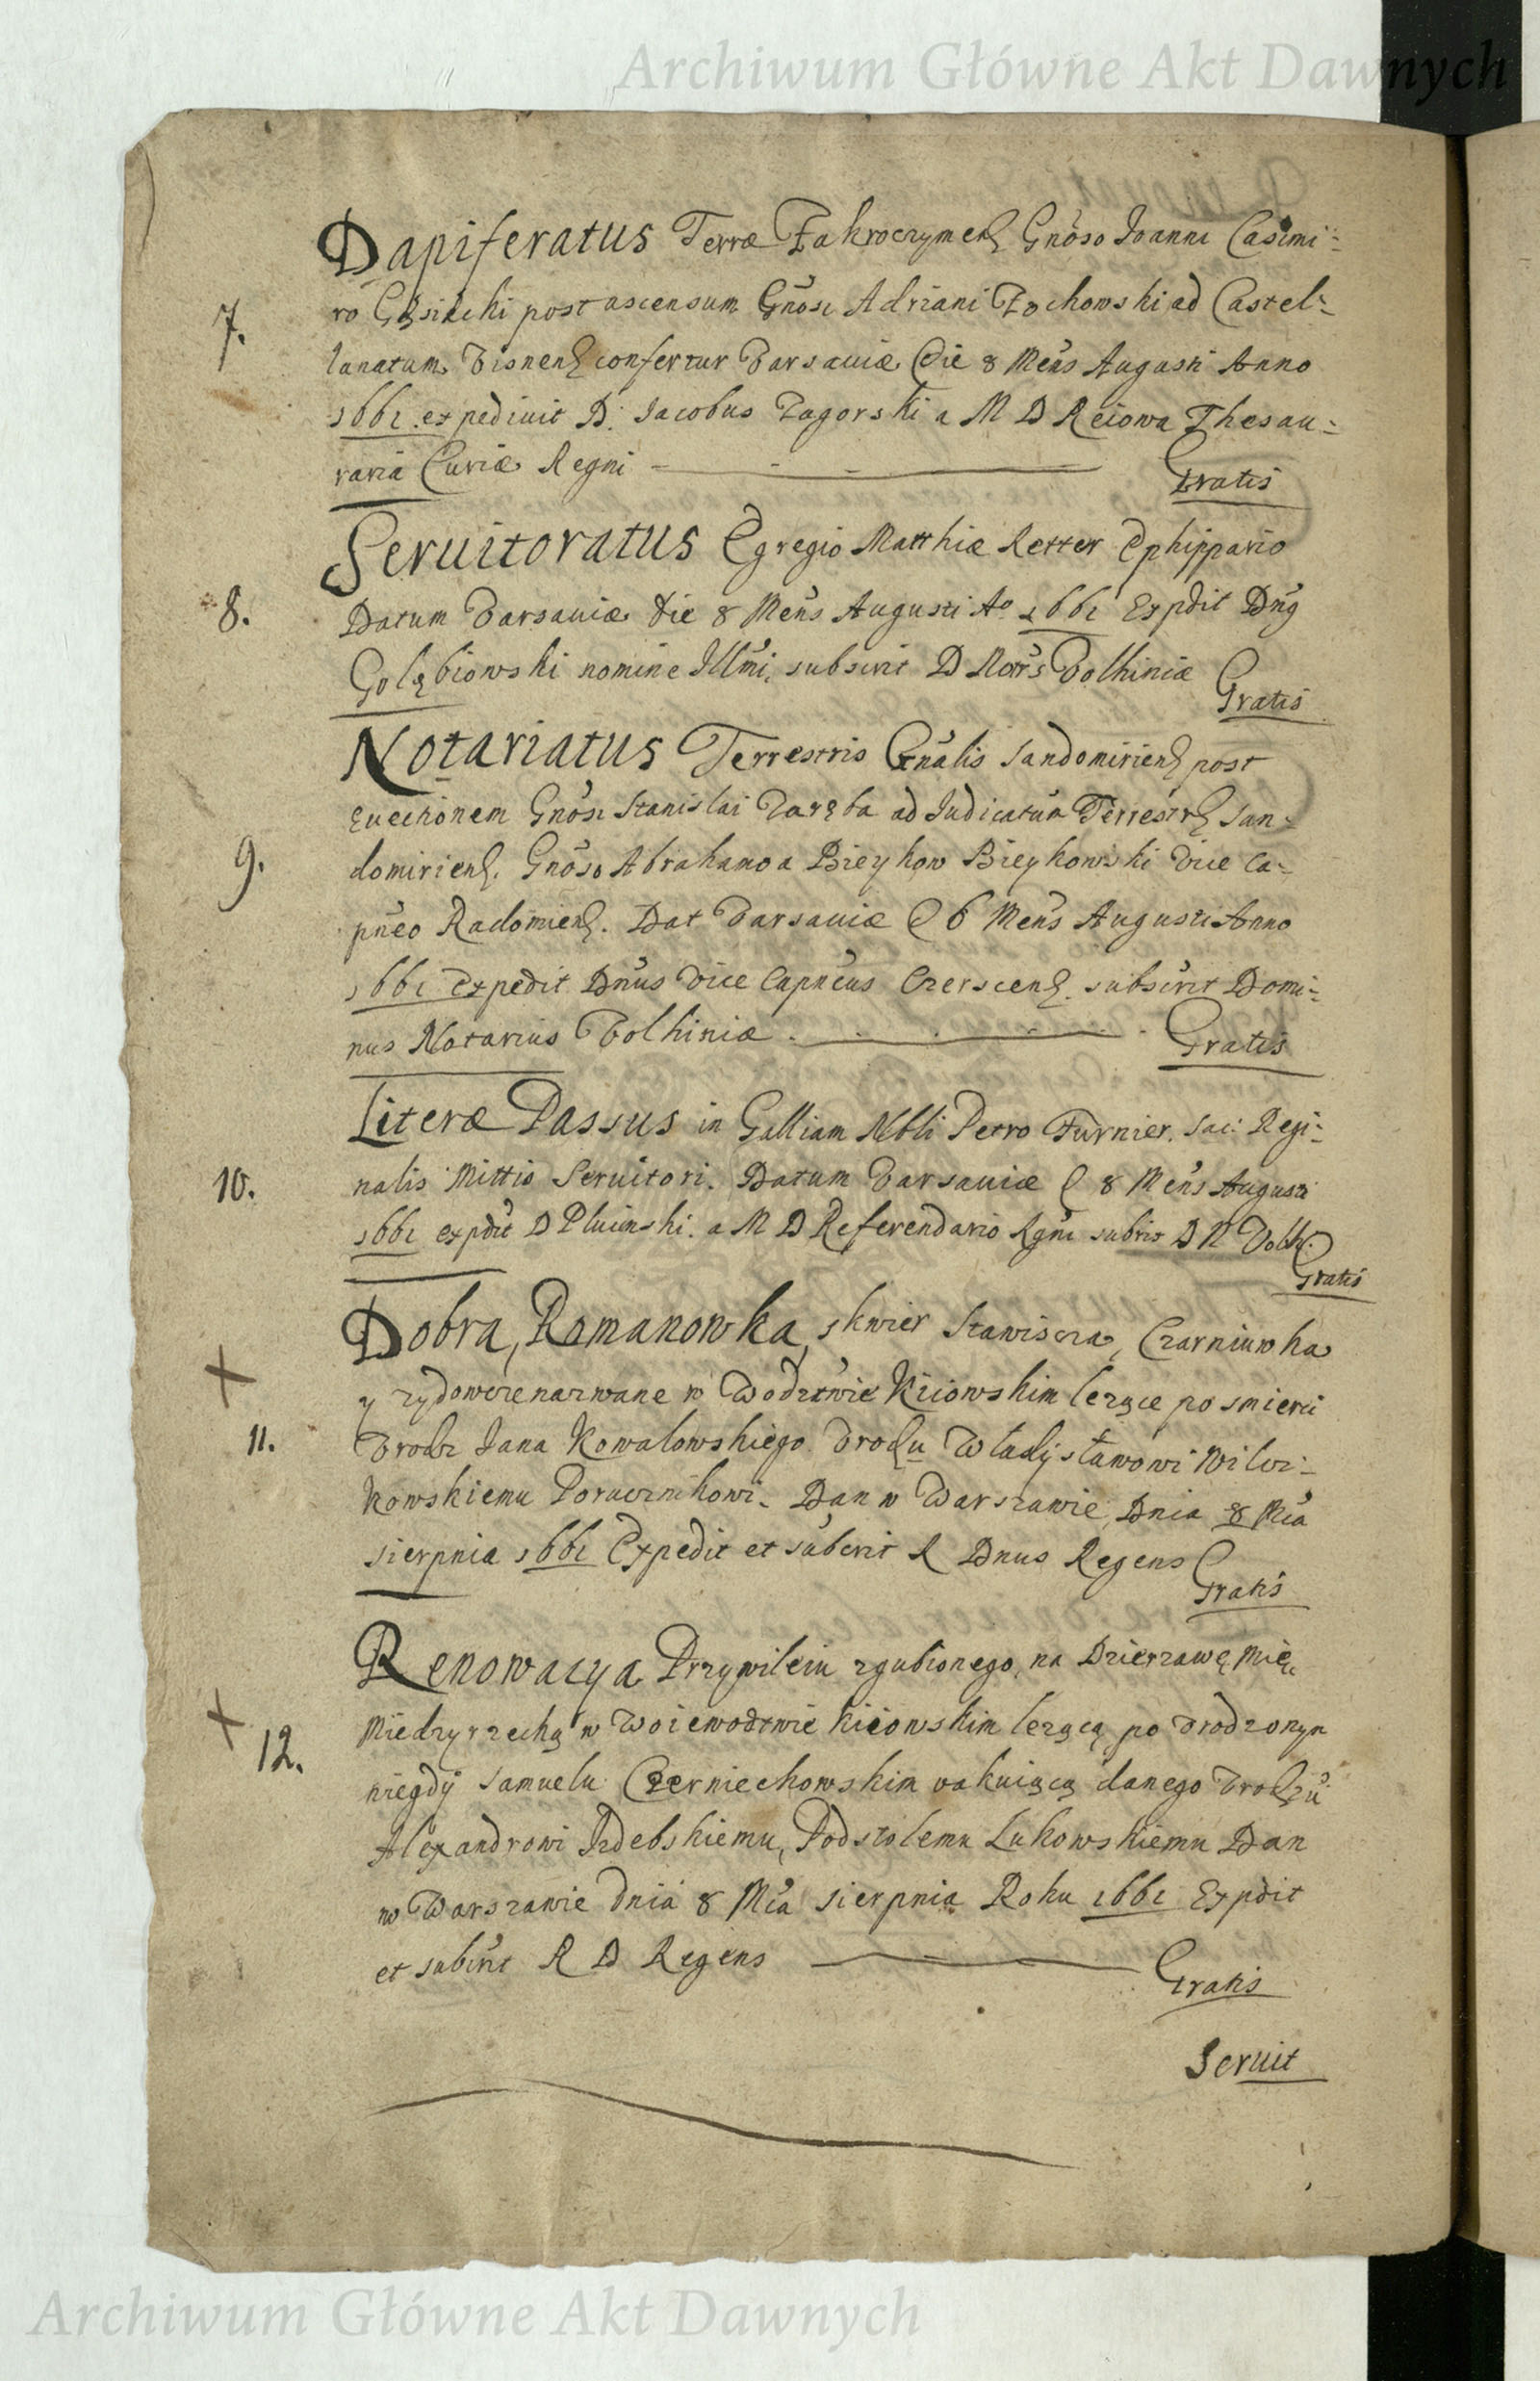 Archiwum Główne Akt Dawnych
Dapiferatus Terræ Zakroczymen Gnoso Joanni Casimi=
ro Gąsiecki post ascensum Gnosi Adriani Zochowski ad Castel=
lanatum Visnen confertur Varsaviæ Die 8 Mens Augusti Anno
7.
1661 expediuit D. Jacobus Zagorski a M D Reiowa Thesau=
raria Curiæ Regni Gratis
Seruitoratus Egregio Matthiæ Retter Ephippario
8. Datum Varsauiæ Die 8 Mens Augusti Ao 1661 Expdit Dng
Golębiowski nomine Illmi, subscrit D Nors Volhiniæ Gratis
Notariatus Terrestris Gnalis Sandomirien post
euectionem Gnosi Stanislai Zaręba ad Judicatum Terestr San=
9. domirien. Gnoso Abrahamo a Bieykow Bieykowski Vice Ca=
pneo Radomien. Dat Varsauiæ D 6 Mens Augusti Anno
1661 Expedit Dnus Vice Capneus Czerscen. subscrit Domi=
nus Notarius Volhiniæ Gratis
Literæ Passus in Galliam Nbli Petro Furnier. Sac: Regi=
10. nalis Mittis Seruitori. Datum Varsauiæ D 8 Mens Augusti
1661 expdit D Pluinski. a M D Referendario Rgni subrit D N Volh.
Gratis
Dobra, Romanowka, skwier Stawiscza, Czarniuwka
y zydowcze nazwane w Wodztwie Kiiowskim lezące po smierci
11. Vrodz Jana Kowalowskiego Vrodzu Władysławowi Wilcz=
kowskiemu Porucznikowi. Dan w Warszawie, Dnia 8 Mca
sierpnia 1661 Expedit et subcrit R Dnus Regens Gratis
Renowacya Przywileiu zgubionego, na Dzierzawę Mię.
Miedzyrzecką w Woiewodztwie kiiowskim lezącą, po Vrodzonym
12. niegdy Samuelu Czerniechowskim vakuiącą danego Vrodzu
Alexandrowi Jzdebskiemu, Podstolemu Lukowskiemu Dan
w Warszawie dnia 8 Mca sierpnia Roku 1661 Expdit
et subcrit R D Regens Gratis
Seruit
Archiwum Główne Akt Dawnych